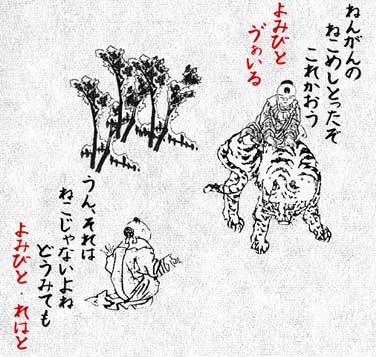 ねんがんの
ねこめしとったぞ
これかおう
よみびと
ゔぁいる
うん、それは
ねこじゃないよね
どうみても
よみびと・れはと